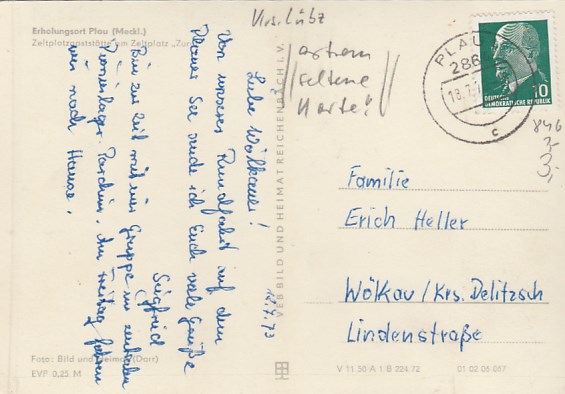 Erholungsort Plau (Meckl.)
Zeltplatzgaststätte am Zeltplatz „Zur
Krs. Lübz
extrem
seltene
Karte!
PLAU
286
18.7.
c
10
DEUTSCHE
DEMOKRATISCHE REPUBLIK
846
3,-
3,-
18.7.73
Liebe Wölkauer!
Von unserer Rundfahrt auf dem
Plauer See sende ich Euch viele Grüße
Siegfried
Bin zur Zeit mit einer Gruppe im zentralen
Pionierlager Parchim. Am Freitag fahren
wir nach Hause.
VEB BILD UND HEIMAT REICHENBACH I. V.
Familie
Erich Heller
Wölkau/Krs. Delitzsch
Lindenstraße
Foto: Bild und Heimat (Darr)
EVP 0,25 M
V 11 50 A 1 B 324/72
01 02 06 087